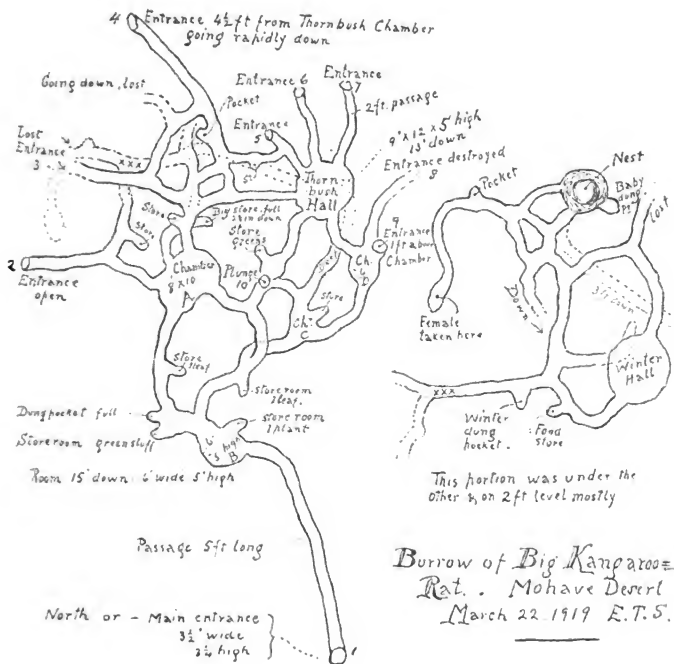 4
Entrance 4½ ft from Thornbush Chamber
going rapidly down
Going down, lost
Pocket
Entrance
6
Entrance
7
2 ft. passage
Entrance
5
Lost
Entrance
3
xxx
9" x 12 x 5 high
15" down
Entrance destroyed
8
Thorn
bush
Hall
Big store full
Store
Store
Store
greens
9
Entrance
1 ft above
Chamber
2
Entrance
open
Chamber
8 x 10
A
Plunge
10"
Ch.
D
Store
Ch.
C
Store
1 leaf
Store room
1 leaf.
Store room
1 plant
Dung pocket full
Storeroom greenstuff
6"
5 high
B
Room 15" down 6" wide 5" high
Passage 5 ft long
North or - Main entrance
3½" wide
3¼ high
1
Pocket
Nest
Baby
dung
Pt.
Lost
Down
Female
taken here
Winter
Hall
xxx
Winter
dung
pocket.
Food
Store
This portion was under the
other & on 2 ft level mostly
Burrow of Big Kangaroo=
Rat. . Mohave Desert
March 22 1919 E.T.S.